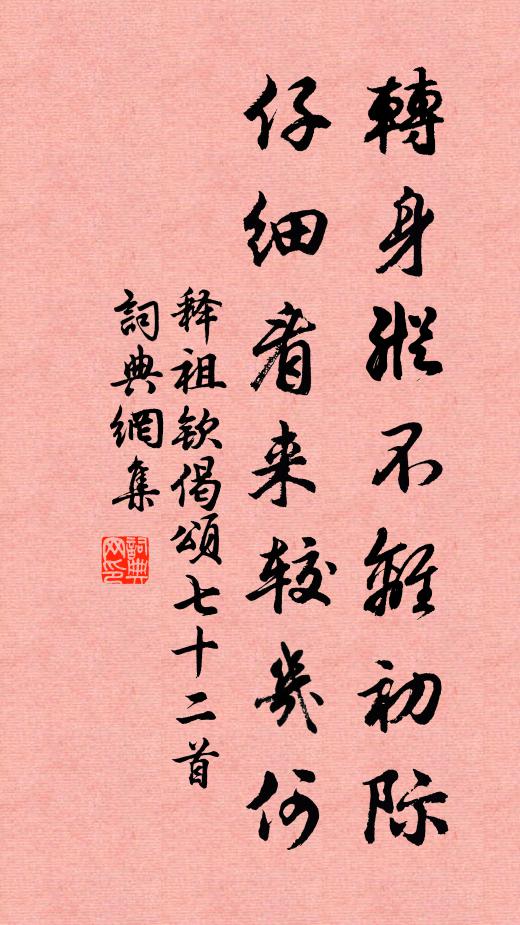 轉身雖不離初际
仔细看来较幾何
释祖钦偈頌七十二首
詞典網集
詞典网印